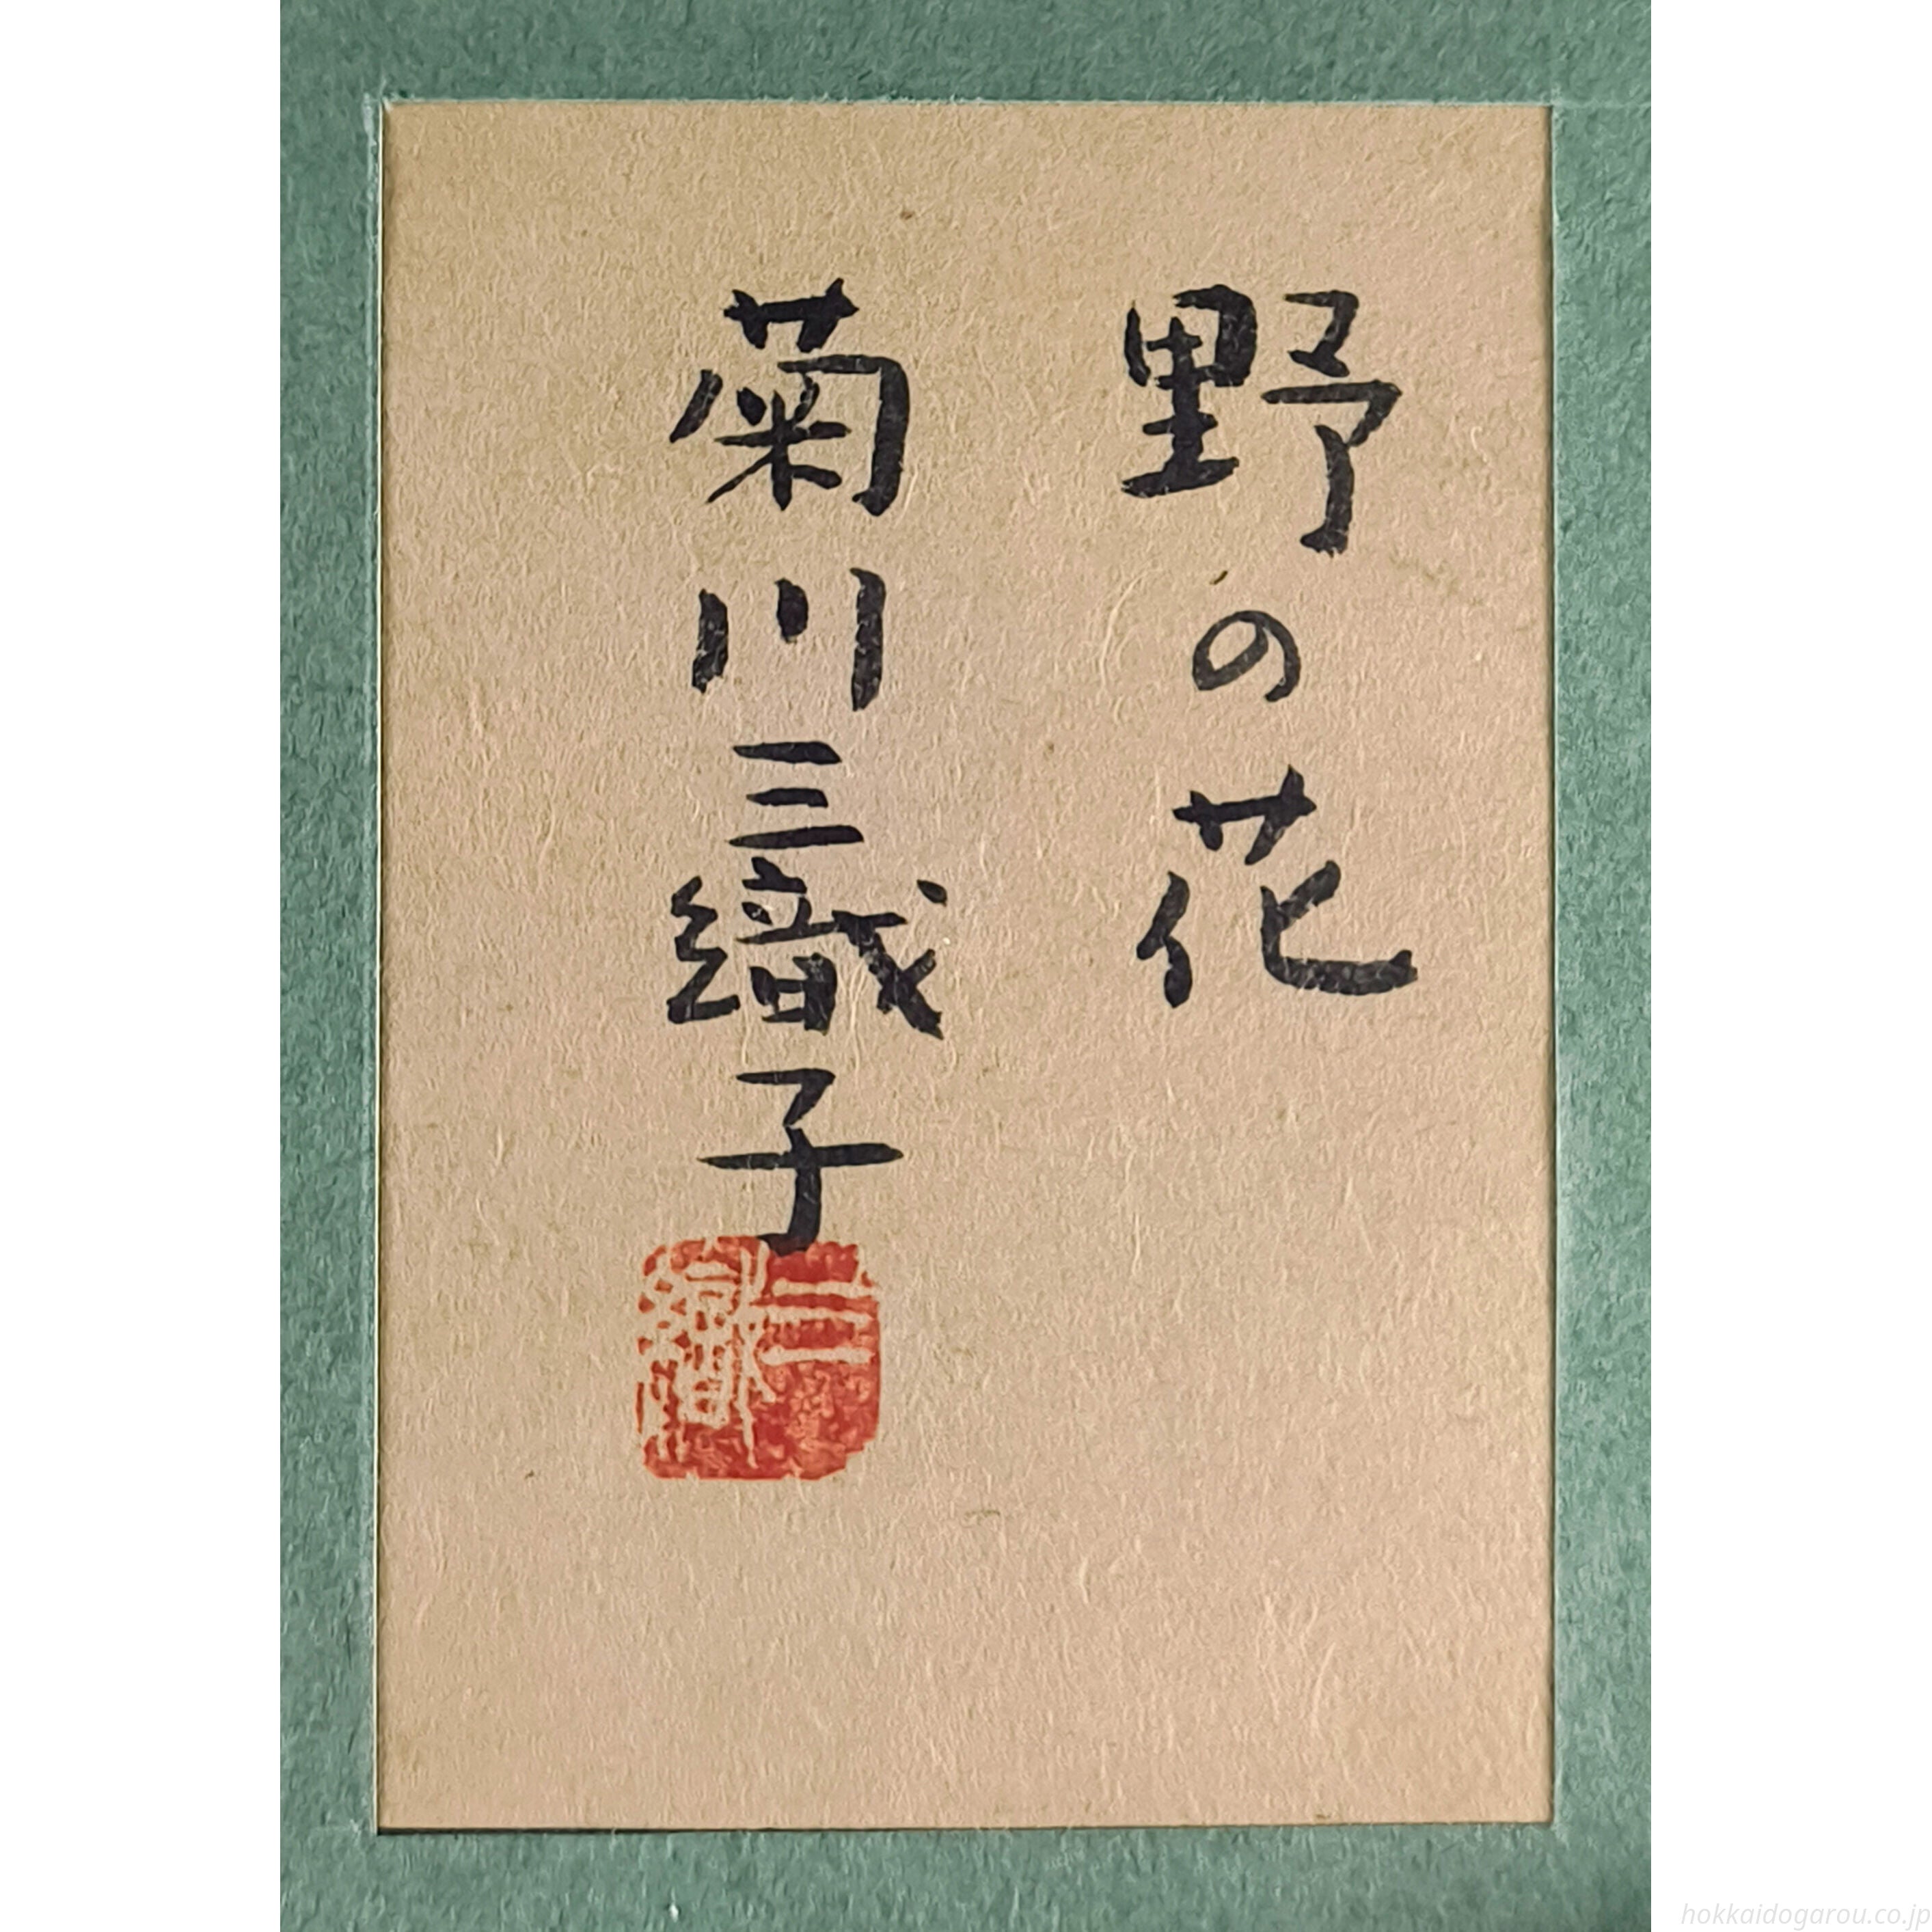 野の花
菊川三織子
三織
hokkaidogarou.co.jp